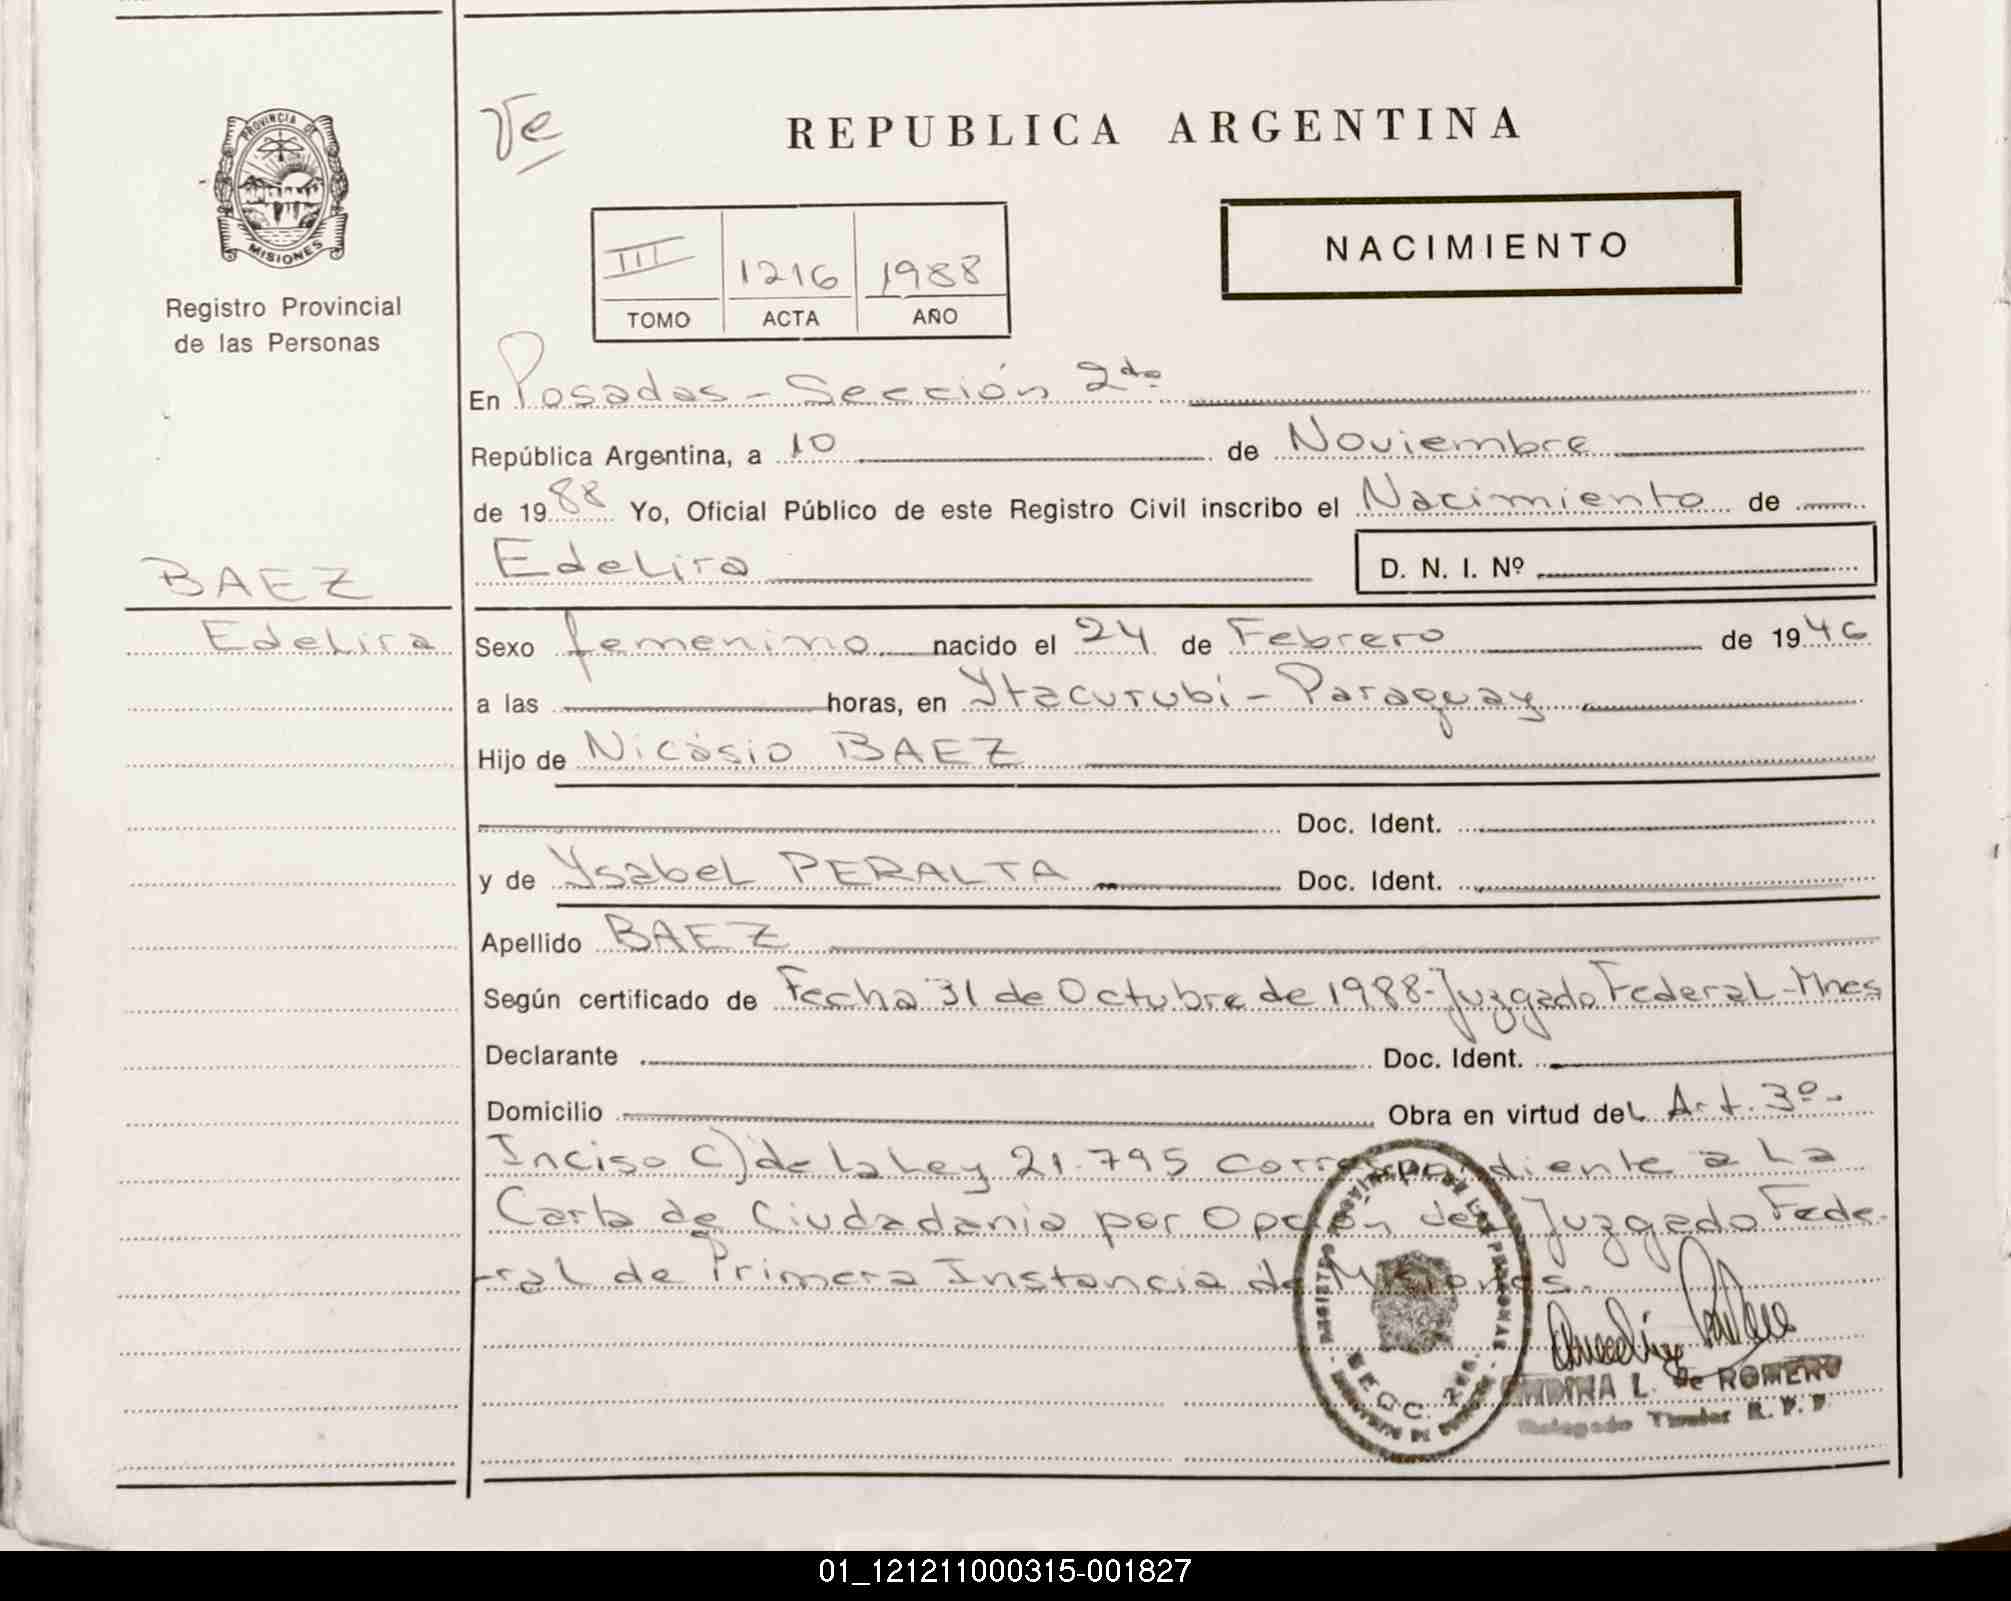 PROVINCIA DE
MISIONES
Registro Provincial
de las Personas
BAEZ
Edelira
Ve
REPUBLICA ARGENTINA
III 1216 1988
TOMO ACTA AÑO
NACIMIENTO
En Posadas - Sección 2da
República Argentina, a 10 de Noviembre
de 1988 Yo, Oficial Público de este Registro Civil inscribo el Nacimiento de
Edelira D. N. I. Nº
Sexo femenino nacido el 24 de Febrero de 1946
a las horas, en Ytacurubí - Paraguay
Hijo de Nicasio BAEZ
Doc. Ident.
y de Ysabel PERALTA Doc. Ident.
Apellido BAEZ
Según certificado de Fecha 31 de Octubre de 1988 - Juzgado Federal - Mnes
Declarante Doc. Ident.
Domicilio Obra en virtud del Art. 3º -
Inciso C) de la Ley 21.795 correspondiente a la
Carta de Ciudadanía por Opción del Juzgado Fede-
-ral de Primera Instancia de Misiones.
SECC. 2da.
L. de ROMERO
Delegado Titular R. P. P.
01_121211000315-001827